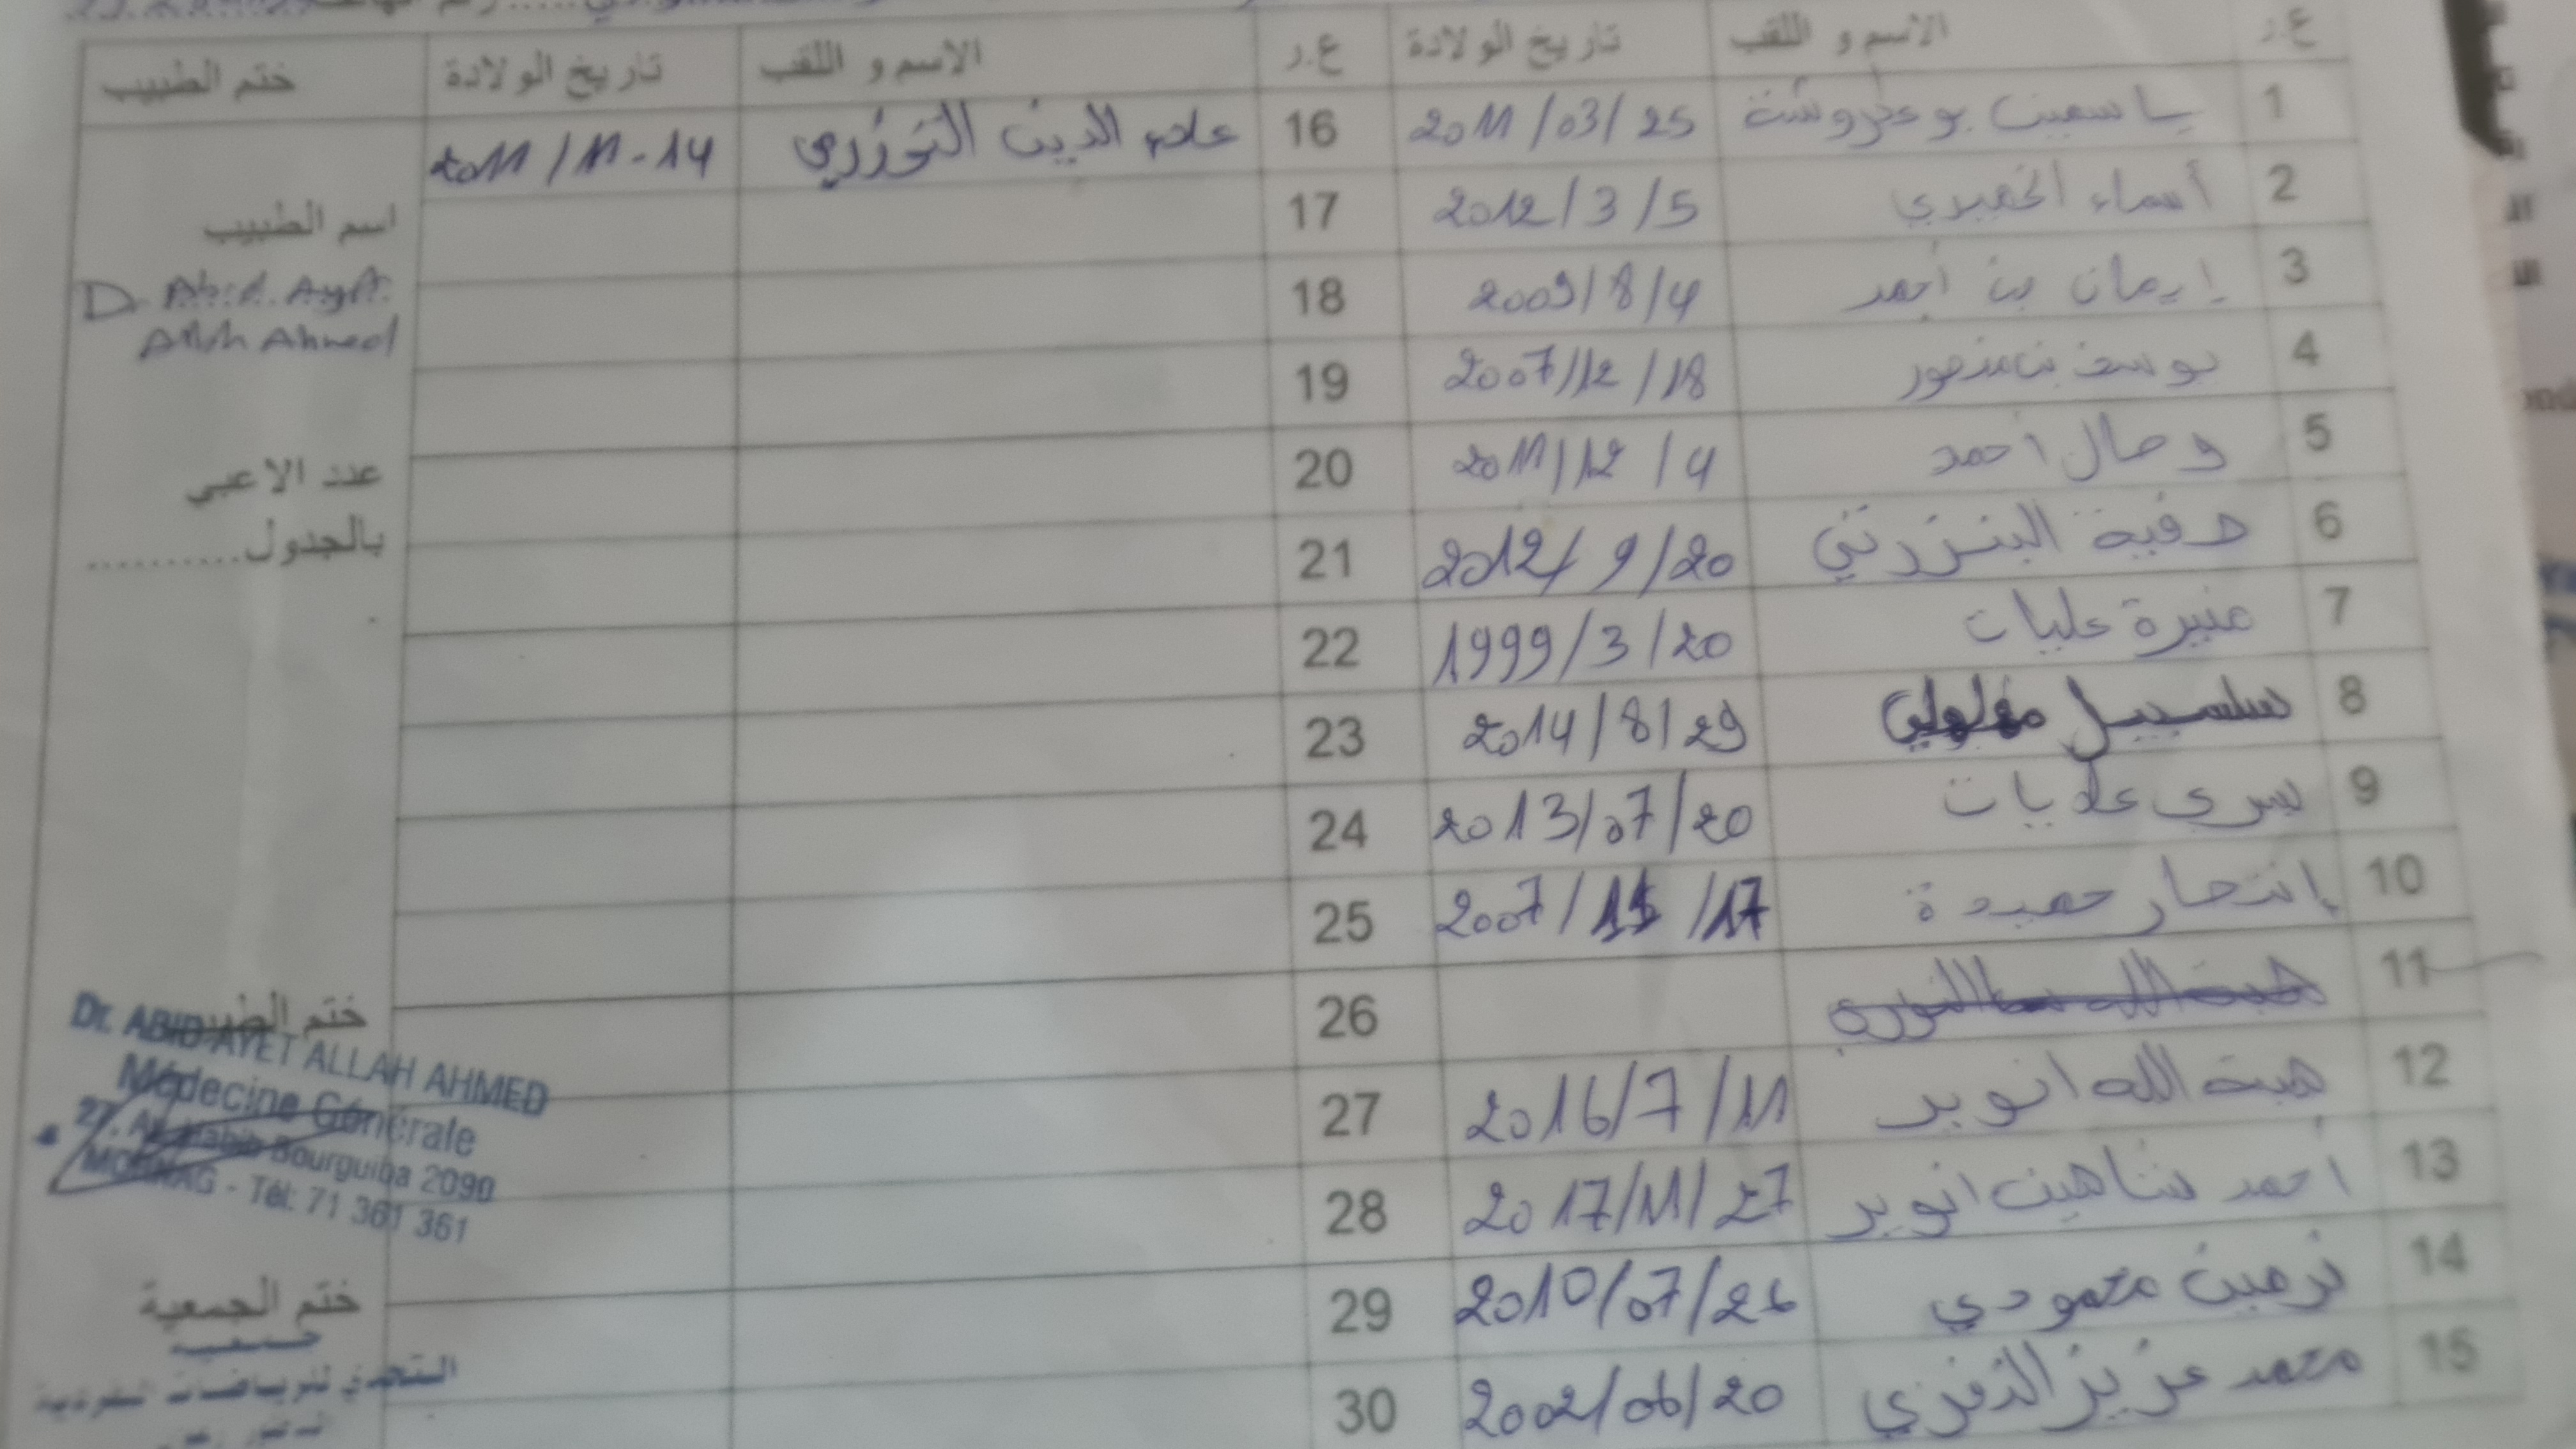 ع.ر الاسم و اللقب تاريخ الولادة ع.ر الاسم و اللقب تاريخ الولادة ختم الطبيب
1 ياسمين بوعكروشة 2011/03/25
2 أسماء الخميري 2012/3/5
3 إيمان بن أحمد 2009/8/4
4 يوسف بن منصور 2007/12/18
5 وصال أحمد 2011/12/4
6 صفية البنزرتي 2012/9/20
7 منيرة عليات 1999/3/20
8 سلسبيل 2014/8/29
9 يسرى علايات 2013/07/20
10 إنتصار حميدة 2007/11/17
11 هبة الله
12 هبة الله انوير 2016/7/11
13 أحمد شاهين انوير 2017/11/27
14 نرمين محمودي 2010/07/26
15 محمد عزيز النفزي 2002/06/20
16 علاء الدين التوزري 2011/11-14
17
18
19
20
21
22
23
24
25
26
27
28
29
30
اسم الطبيب
D. Abid Ayet
Allah Ahmed
عدد الاعبي
بالجدول..........
ختم الطبيب
Dr. ABID AYET ALLAH AHMED
Médecine Générale
27, Av. Habib Bourguiba 2090
MORNAG - Tél: 71 361 361
ختم الجمعية
جمعية
التحدي للرياضات الفردية